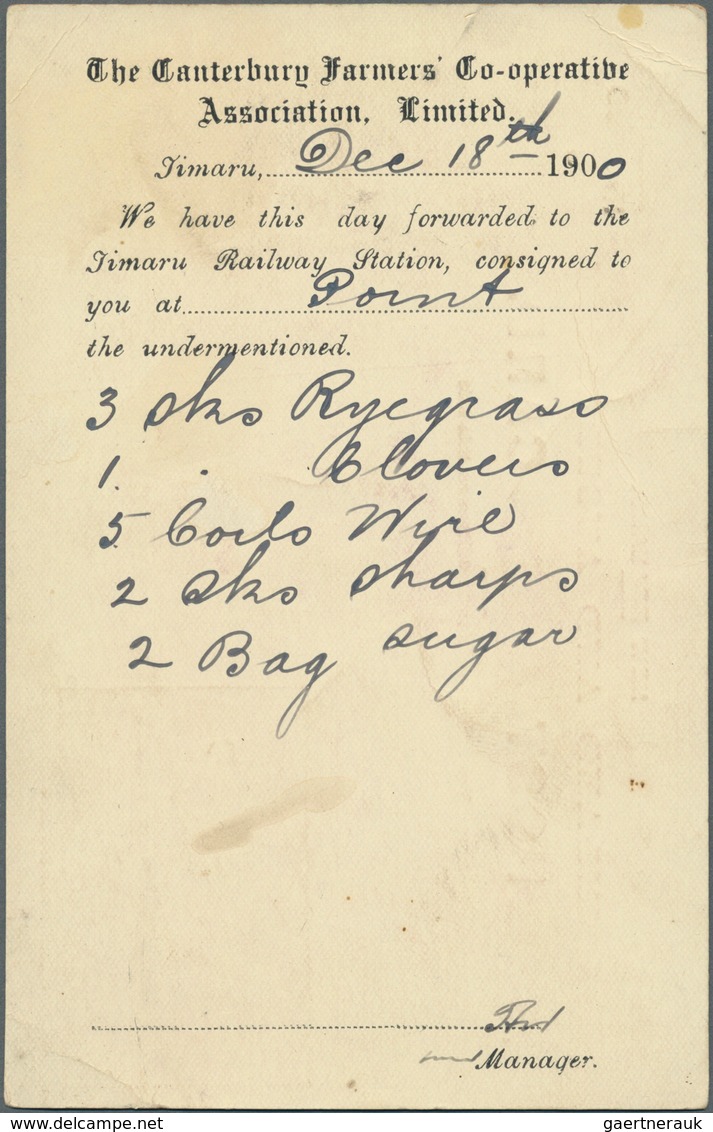 The Canterbury Farmers' Co-operative
Association, Limited.
Timaru, Dec 18th 1900
We have this day forwarded to the
Timaru Railway Station, consigned to
you at Point
the undermentioned.
3 sks Ryegrass
1 . Clovers
5 Coils Wire
2 sks sharps
2 Bag sugar
Manager.
gaertnerauk